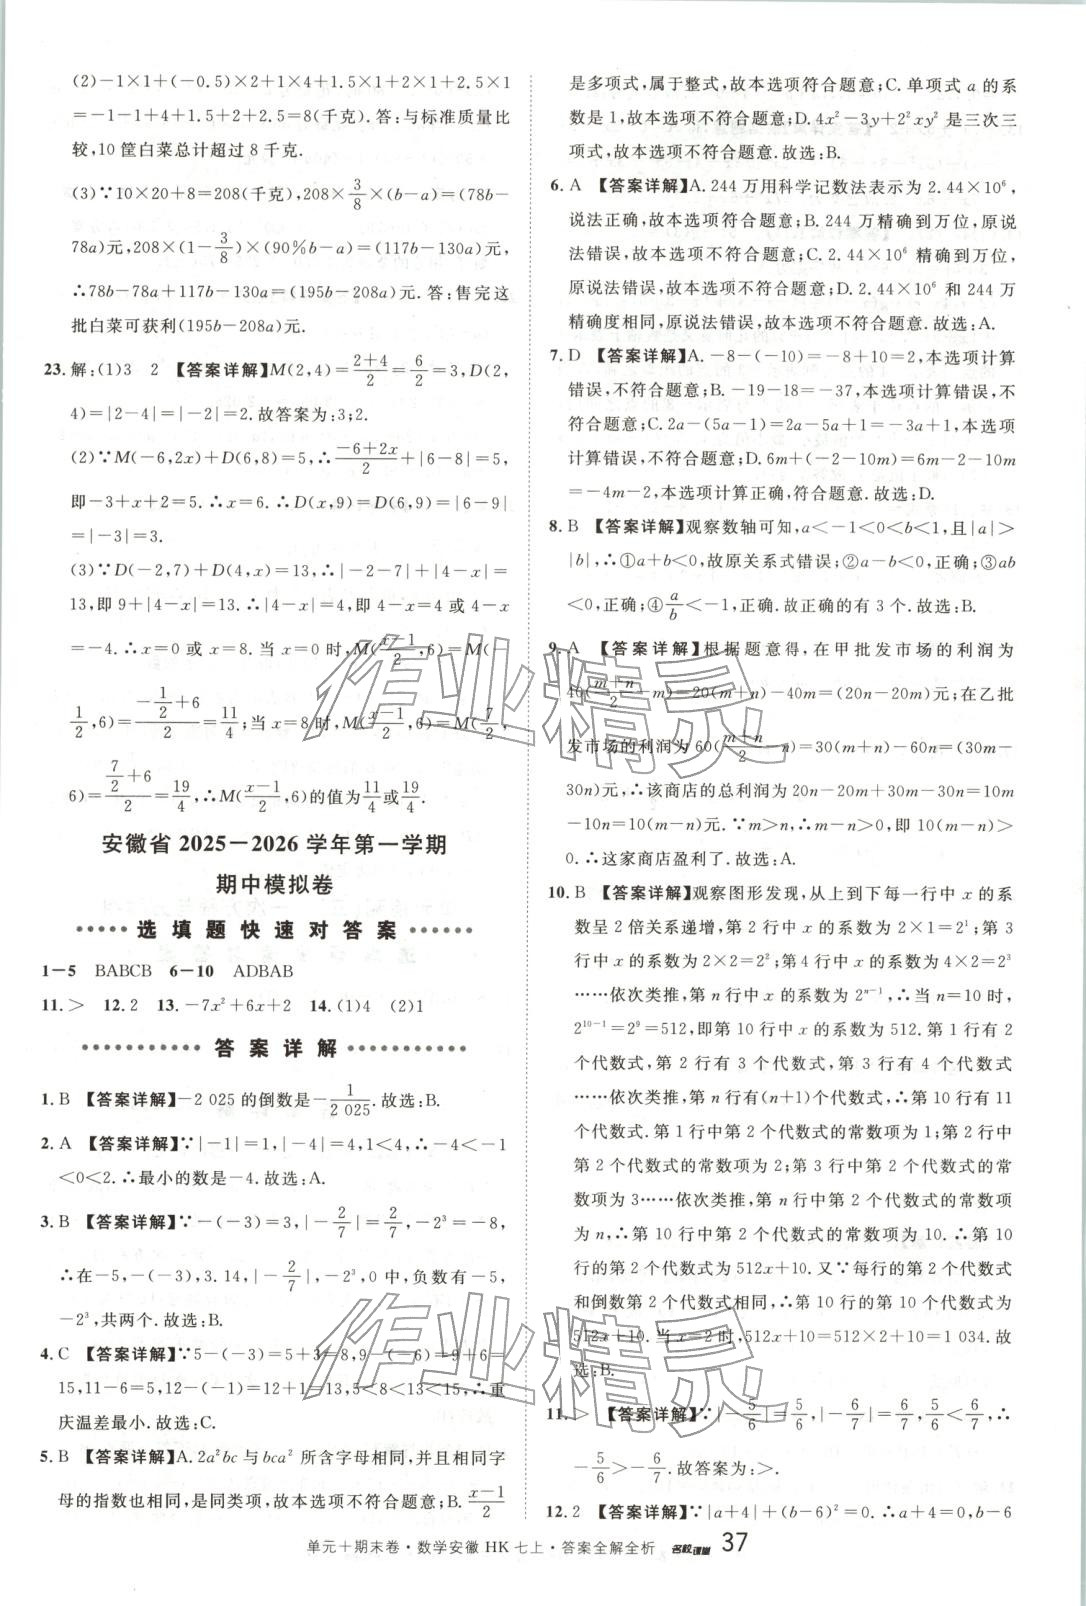 (2)−1×1+(−0.5)×2+1×4+1.5×1+2×1+2.5×1
=−1−1+4+1.5+2+2.5=8(千克).答:与标准质量比
较,10筐白菜总计超过8千克.
(3)∵10×20+8=208(千克),208×3/8×(b−a)=(78b−
78a)元,208×(1−3/8)×(90%b−a)=(117b−130a)元,
∴78b−78a+117b−130a=(195b−208a)元.答:售完这
批白菜可获利(195b−208a)元.
23.解:(1)3 2 【答案详解】M(2,4)=(2+4)/2=6/2=3,D(2,
4)=|2−4|=|−2|=2.故答案为:3;2.
(2)∵M(−6,2x)+D(6,8)=5,∴(−6+2x)/2+|6−8|=5,
即−3+x+2=5.∴x=6.∴D(x,9)=D(6,9)=|6−9|
=|−3|=3.
(3)∵D(−2,7)+D(4,x)=13,∴|−2−7|+|4−x|=
13,即9+|4−x|=13.∴|4−x|=4,即4−x=4或4−x
=−4.∴x=0或x=8.当x=0时,M((x−1)/2,6)=M(−
1/2,6)=(−1/2+6)/2=11/4;当x=8时,M((x−1)/2,6)=M(7/2,
6)=(7/2+6)/2=19/4,∴M((x−1)/2,6)的值为11/4或19/4.
安徽省2025—2026学年第一学期
期中模拟卷
选填题快速对答案
1−5 BABCB 6−10 ADBAB
11.> 12.2 13.−7x²+6x+2 14.(1)4 (2)1
答案详解
1.B 【答案详解】−2 025的倒数是−1/2 025.故选:B.
2.A 【答案详解】∵|−1|=1,|−4|=4,1<4,∴−4<−1
<0<2.∴最小的数是−4.故选:A.
3.B 【答案详解】∵−(−3)=3,|−2/7|=2/7,−2³=−8,
∴在−5,−(−3),3.14,|−2/7|,−2³,0中,负数有−5,
−2³,共两个.故选:B.
4.C 【答案详解】∵5−(−3)=5+3=8,9−(−6)=9+6=
15,11−6=5,12−(−1)=12+1=13,5<8<13<15,∴重
庆温差最小.故选:C.
5.B 【答案详解】A.2a²bc与bca²所含字母相同,并且相同字
母的指数也相同,是同类项,故本选项不符合题意;B.(x−1)/2
是多项式,属于整式,故本选项符合题意;C.单项式a的系
数是1,故本选项不符合题意;D.4x²−3y+2²xy²是三次三
项式,故本选项不符合题意.故选:B.
6.A 【答案详解】A.244万用科学记数法表示为2.44×10⁶,
说法正确,故本选项符合题意;B.244万精确到万位,原说
法错误,故本选项不符合题意;C.2.44×10⁶精确到万位,
原说法错误,故本选项不符合题意;D.2.44×10⁶和244万
精确度相同,原说法错误.故本选项不符合题意.故选:A.
7.D 【答案详解】A.−8−(−10)=−8+10=2,本选项计算
错误,不符合题意;B.−19−18=−37,本选项计算错误,不
符合题意;C.2a−(5a−1)=2a−5a+1=−3a+1,本选项
计算错误,不符合题意;D.6m+(−2−10m)=6m−2−10m
=−4m−2,本选项计算正确,符合题意.故选:D.
8.B 【答案详解】观察数轴可知,a<−1<0<b<1,且|a|>
|b|,∴①a+b<0,故原关系式错误;②a−b<0,正确;③ab
<0,正确;④a/b<−1,正确.故正确的有3个.故选:B.
9.A 【答案详解】根据题意得,在甲批发市场的利润为
40((m+n)/2−m)=20(m+n)−40m=(20n−20m)元;在乙批
发市场的利润为60((m+n)/2−n)=30(m+n)−60n=(30m−
30n)元,∴该商店的总利润为20n−20m+30m−30n=10m
−10n=10(m−n)元.∵m>n,∴m−n>0,即10(m−n)>
0.∴这家商店盈利了.故选:A.
10.B 【答案详解】观察图形发现,从上到下每一行中x的系
数呈2倍关系递增,第2行中x的系数为2×1=2¹;第3
行中x的系数为2×2=2²;第4行中x的系数为4×2=2³
……依次类推,第n行中x的系数为2ⁿ⁻¹,∴当n=10时,
2¹⁰⁻¹=2⁹=512,即第10行中x的系数为512.第1行有2
个代数式,第2行有3个代数式,第3行有4个代数式
……依次类推,第n行有(n+1)个代数式,∴第10行有11
个代数式.第1行中第2个代数式的常数项为1;第2行中
第2个代数式的常数项为2;第3行中第2个代数式的常
数项为3……依次类推,第n行中第2个代数式的常数项
为n,∴第10行中第2个代数式的常数项为10.∴第10
行的第2个代数式为512x+10.又∵每行的第2个代数式
和倒数第2个代数式相同,∴第10行的第10个代数式为
512x+10.当x=2时,512x+10=512×2+10=1 034.故
选:B.
11.> 【答案详解】∵|−5/6|=5/6,|−6/7|=6/7,5/6<6/7,∴
−5/6>−6/7.故答案为:>.
12.2 【答案详解】∵|a+4|+(b−6)²=0,∴a+4=0,b−6
单元+期末卷·数学安徽HK七上·答案全解全析 名校课堂 37
作业精灵
作业精灵